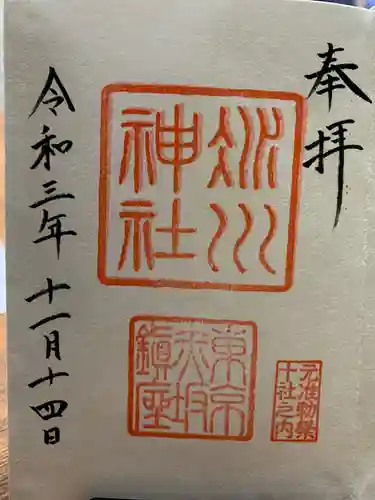 奉拝
氷川
神社
東京
赤坂
鎮座
元准勅祭
十社之内
令和三年 十一月十四日